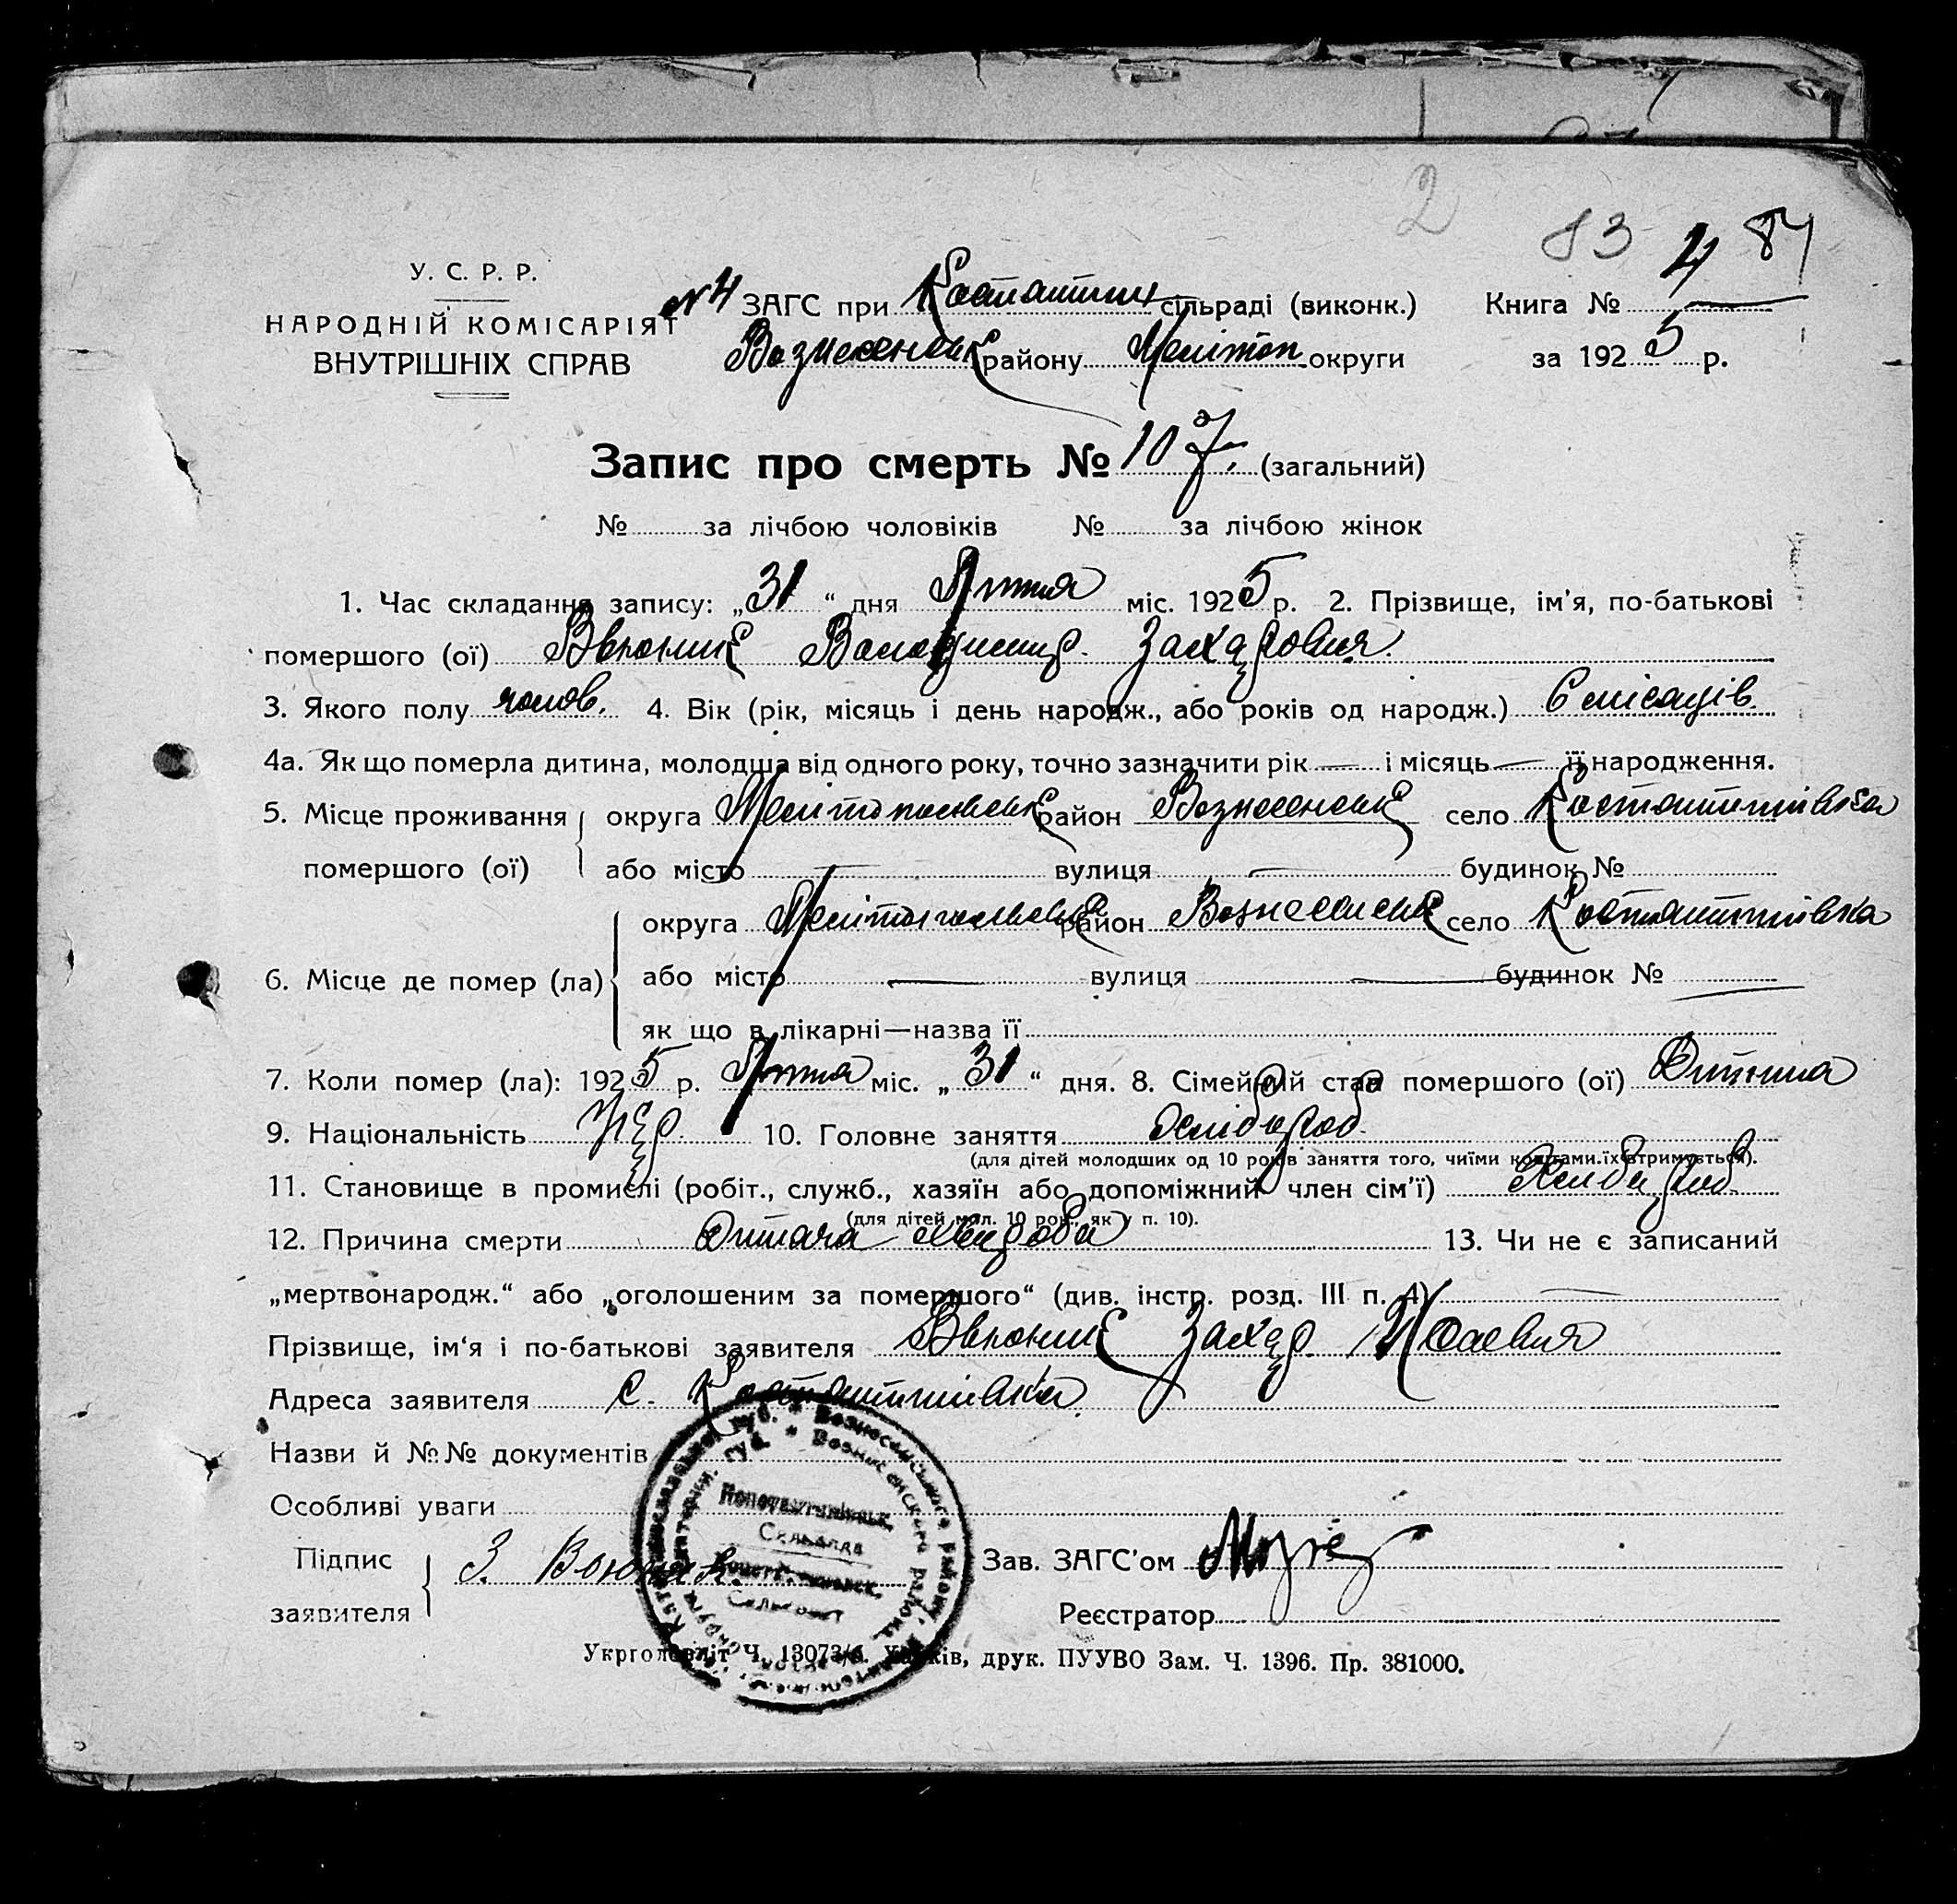 2
83 4 84
У. С. Р. Р.
НАРОДНІЙ КОМІСАРІЯТ
ВНУТРІШНІХ СПРАВ
№ 4 ЗАГС при Костянтин сільраді (виконк.) Книга №
Вознесенськ району Мелітоп. округи за 1925 р.
Запис про смерть № 107 (загальний)
№ за лічбою чоловіків № за лічбою жінок
1. Час складання запису: „31“ дня Липня міс. 1925 р. 2. Прізвище, ім'я, по-батькові
помершого (ої) Володимир Захарович
3. Якого полу чолов. 4. Вік (рік, місяць і день народж., або років од народж.) 6 місяців
4а. Як що померла дитина, молодша від одного року, точно зазначити рік — і місяць — її народження.
5. Місце проживання округа Мелітопольськ район Вознесенськ село Костантинівка
помершого (ої) або місто — вулиця — будинок №
округа Мелітопольськ район Вознесенськ село Костантинівка
6. Місце де помер (ла) або місто — вулиця — будинок № —
як що в лікарні—назва її
7. Коли помер (ла): 1925 р. Липня міс. „31“ дня. 8. Сімейний стан помершого (ої) Дитина
9. Національність Укр. 10. Головне заняття хлібороб.
(для дітей молодших од 10 років заняття того, чиїми коштами їх втримується).
11. Становище в промислі (робіт., служб., хазяїн або допоміжний член сім'ї) Хлібороб
(для дітей мол. 10 рок., як у п. 10).
12. Причина смерти Дитяча хвороба 13. Чи не є записаний
„мертвонародж.“ або „оголошеним за помершого“ (див. інстр. розд. III п. 4) —
Прізвище, ім'я і по-батькові заявителя Захар
Адреса заявителя с. Костантинівка.
Назви й №№ документів
Особливі уваги
Підпис
заявителя З. Зав. ЗАГС'ом
Реєстратор
Укрголовліт Ч. 13073/б. Харків, друк. ПУУВО Зам. Ч. 1396. Пр. 381000.